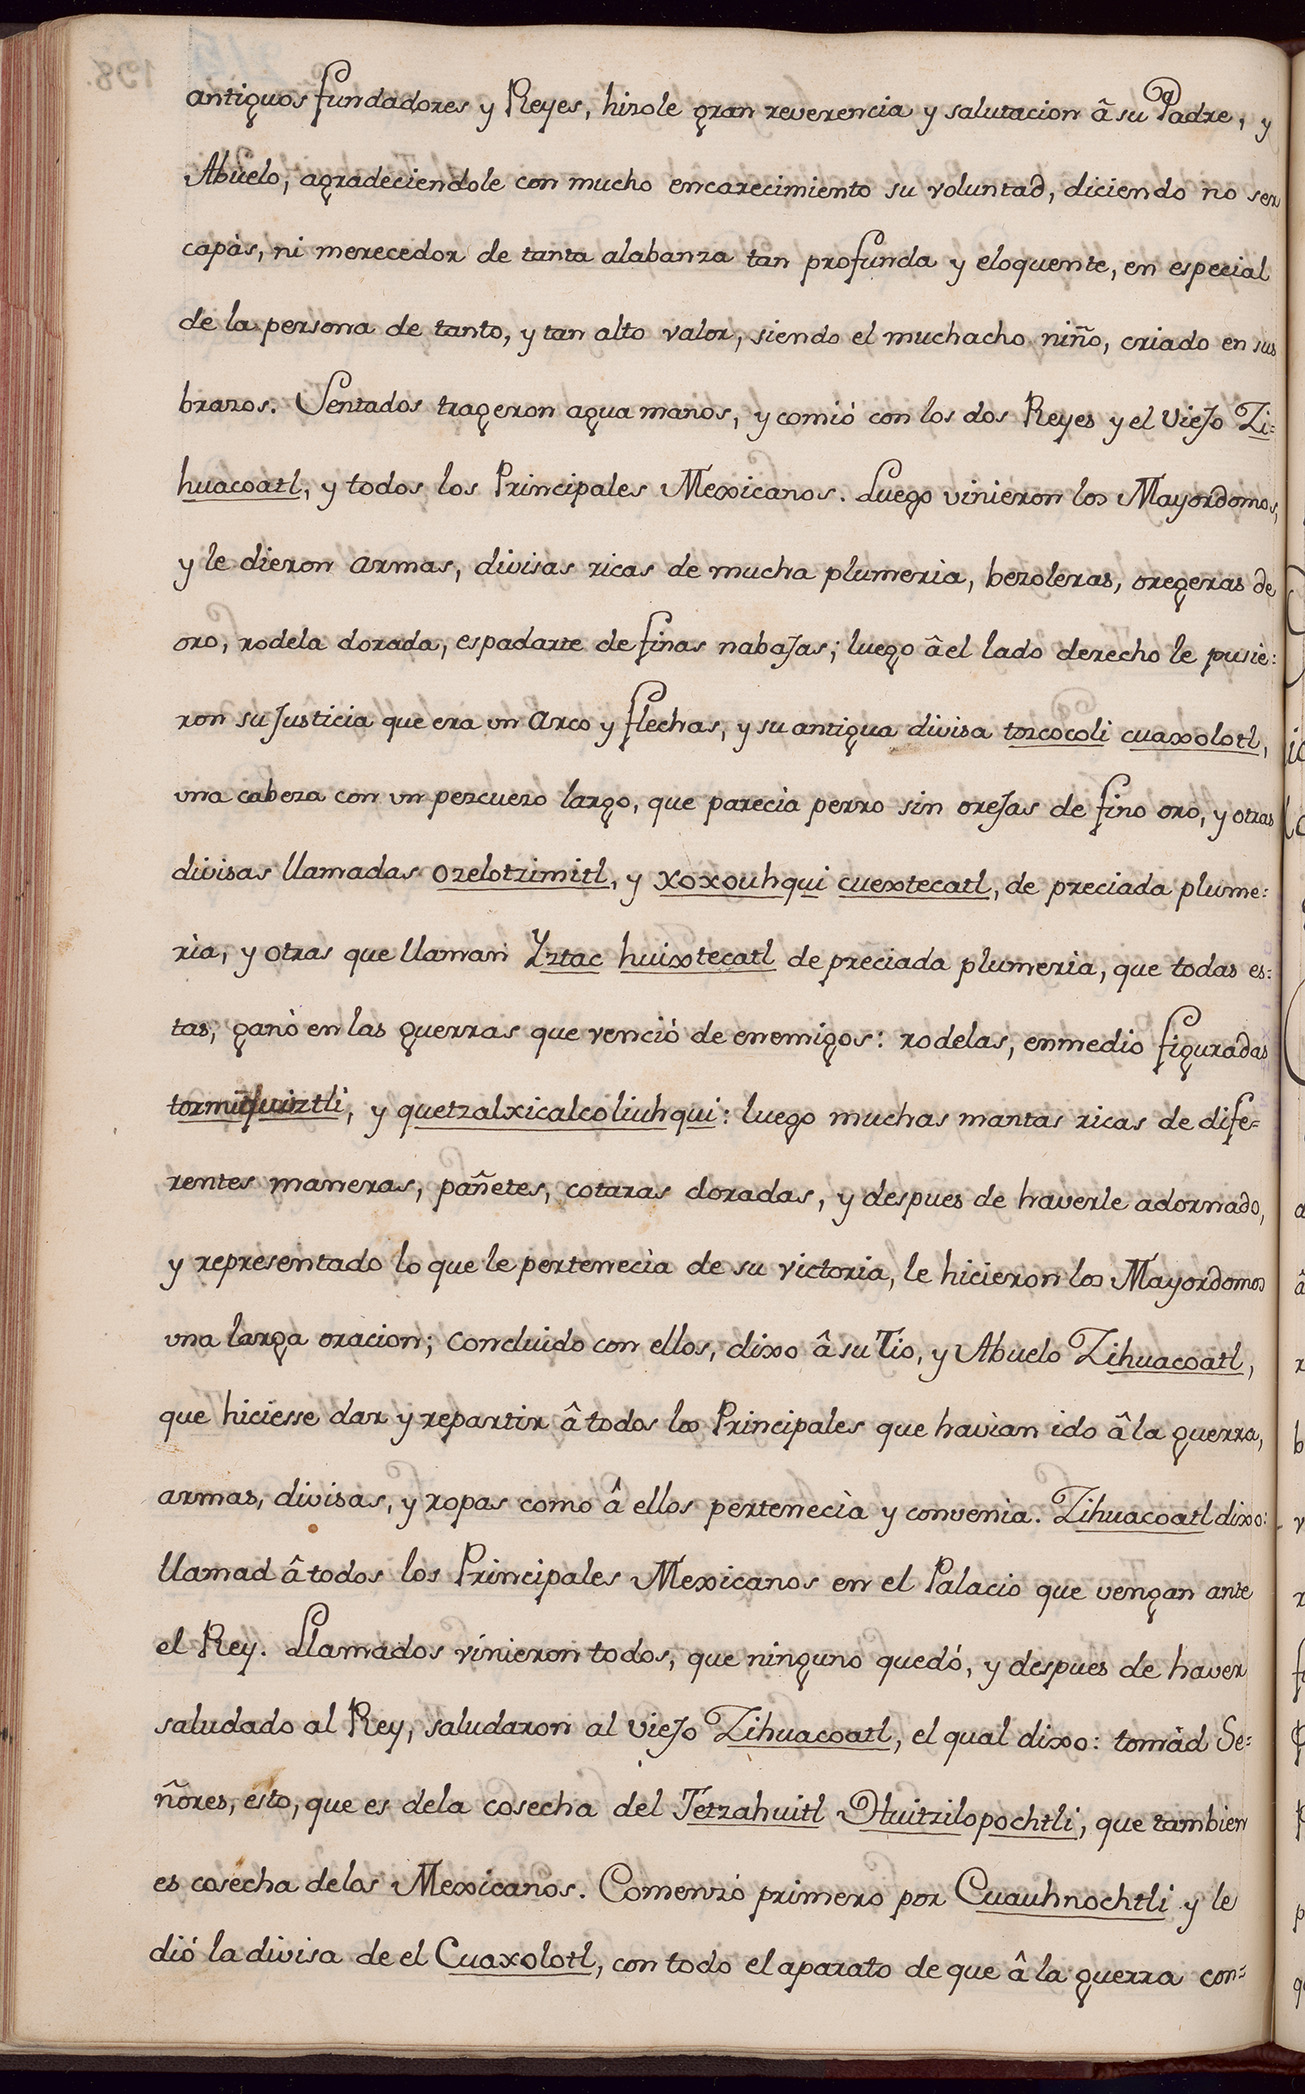 antiguos fundadores y Reyes, hizole gran reverencia y salutacion â su Padre, y
Abuelo, agradeciendole con mucho encarecimiento su voluntad, diciendo no ser
capàs, ni merecedor de tanta alabanza tan profunda y eloquente, en especial
de la persona de tanto, y tan alto valor, siendo el muchacho niño, criado en sus
brazos. Sentados trageron agua manos, y comió con los dos Reyes y el Viejo Zi=
huacoatl, y todos los Principales Mexicanos. Luego vinieron los Mayordomos,
y le dieron armas, divisas ricas de mucha plumeria, bezoleras, oregeras de
oro, rodela dorada, espadarte de finas nabajas; luego â el lado derecho le pusie:
ron su Justicia que era un Arco y flechas, y su antigua divisa tozcocoli cuaxolotl,
una cabeza con un pezcuezo largo, que parecìa perro sin orejas de fino oro, y otras
divisas llamadas ozelotzimitl, y xoxouhqui cuextecatl, de preciada plume:
rìa, y otras que llaman Yztac huixtecatl de preciada plumerìa, que todas es:
tas, ganò en las guerras que venció de enemigos: rodelas, enmedio figuradas
tozmiquiztli, y quetzalxicalcoliuhqui: luego muchas mantas ricas de dife=
rentes maneras, pañetes, cotaras doradas, y despues de haverle adornado,
y representado lo que le pertenecìa de su victoria, le hicieron los Mayordomos
una larga oracion; concluido con ellos, dixo â su Tio, y Abuelo Zihuacoatl,
que hiciesse dar y repartir â todos los Principales que havìan ido â la guerra,
armas, divisas, y ropas como â ellos pertenecìa y convenìa. Zihuacoatl dixo:
llamad â todos los Principales Mexicanos en el Palacio que vengan ante
el Rey. Llamados vinieron todos, que ninguno quedó, y despues de haver
saludado al Rey, saludaron al viejo Zihuacoatl, el qual dixo: tomàd Se=
ñores, esto, que es dela cosecha del Tetzahuitl Huitzilopochtli, que tambien
es cosecha delos Mexicanos. Comenzó primero por Cuauhnochtli y le
dió la divisa de el Cuaxolotl, con todo el aparato de que â la guerra con=